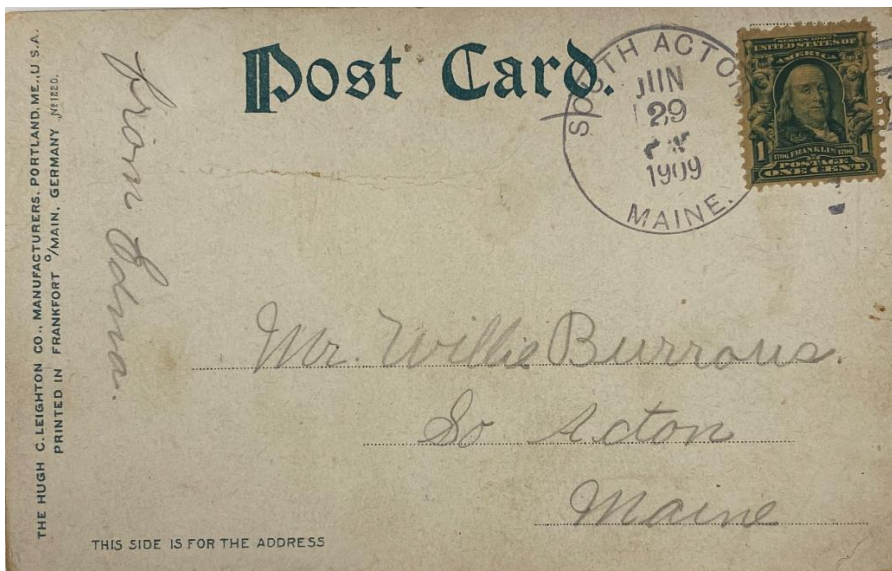 THE HUGH C. LEIGHTON CO., MANUFACTURERS, PORTLAND, ME., U.S.A.
PRINTED IN FRANKFORT O/MAIN, GERMANY No 1220.
from Edna.
Post Card.
SOUTH ACTON
JUN
29
1909
MAINE.
SERIES 1902
UNITED STATES OF
AMERICA
1706 FRANKLIN 1790
1 POSTAGE 1
ONE CENT
Mr. Willie Burrows.
So Acton
Maine
THIS SIDE IS FOR THE ADDRESS